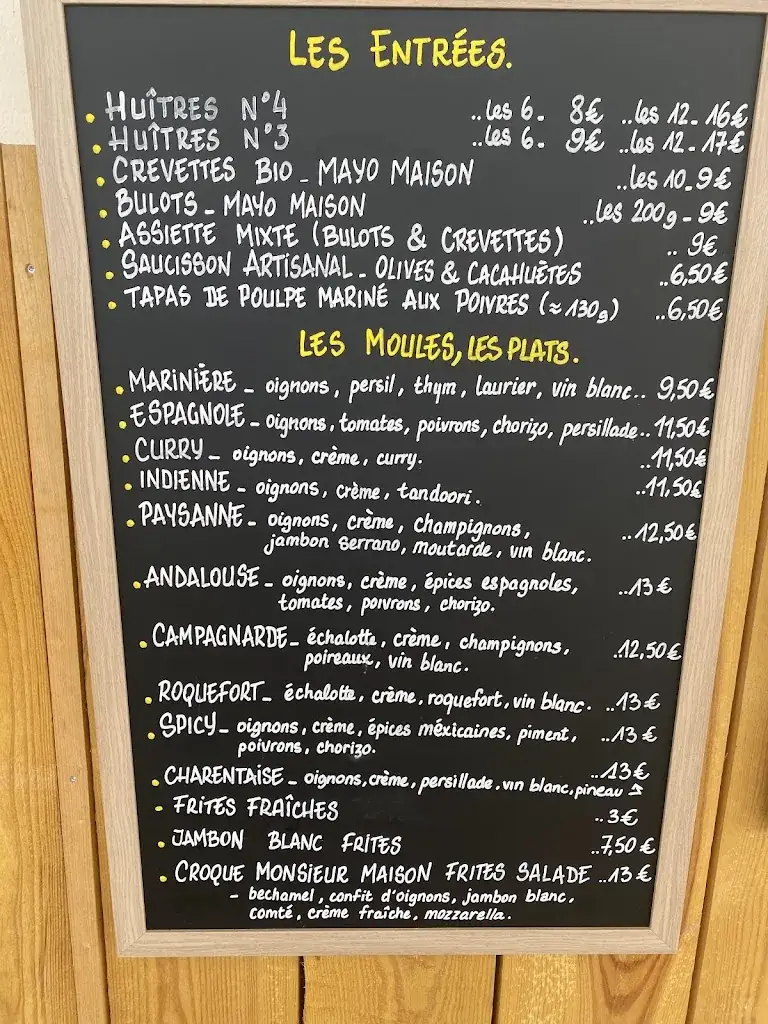 LES ENTRÉES.
HUÎTRES N°4 ..les 6. 8€ ..les 12. 16€
HUÎTRES N°3 ..les 6. 9€ ..les 12. 17€
CREVETTES BIO - MAYO MAISON ..les 10.9€
BULOTS - MAYO MAISON ..les 200g - 9€
ASSIETTE MIXTE (BULOTS & CREVETTES) .. 9€
SAUCISSON ARTISANAL - OLIVES & CACAHUÈTES ..6,50€
TAPAS DE POULPE MARINÉ AUX POIVRES (≈130g) ..6,50€
LES MOULES, LES PLATS.
MARINIÈRE - oignons, persil, thym, laurier, vin blanc.. 9,50€
ESPAGNOLE - oignons, tomates, poivrons, chorizo, persillade.. 11,50€
CURRY - oignons, crème, curry. ..11,50€
INDIENNE - oignons, crème, tandoori. ..11,50€
PAYSANNE - oignons, crème, champignons, ..12,50€
jambon serrano, moutarde, vin blanc.
ANDALOUSE - oignons, crème, épices espagnoles, ..13€
tomates, poivrons, chorizo.
CAMPAGNARDE - échalotte, crème, champignons, ..12,50€
poireaux, vin blanc.
ROQUEFORT - échalotte, crème, roquefort, vin blanc. ..13€
SPICY - oignons, crème, épices méxicaines, piment, ..13€
poivrons, chorizo.
..13€
CHARENTAISE - oignons, crème, persillade, vin blanc, pineau
FRITES FRAÎCHES ..3€
JAMBON BLANC FRITES ..7,50€
CROQUE MONSIEUR MAISON FRITES SALADE ..13€
- bechamel, confit d'oignons, jambon blanc,
comté, crème fraîche, mozzarella.